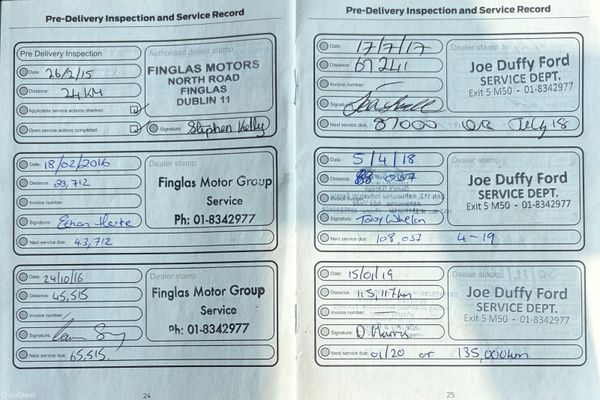 Pre-Delivery Inspection and Service Record
Pre Delivery Inspection
Date: 26/2/15
Distance: 24KM
Applicable service actions checked
Open service actions completed
Authorised dealer stamp
FINGLAS MOTORS
NORTH ROAD
FINGLAS
DUBLIN 11
Signature: Stephen Kelly
Date: 18/02/2016
Distance: 23,712
Invoice number:
Signature:
Next service due: 43,712
Dealer stamp
Finglas Motor Group
Service
Ph: 01-8342977
Date: 24/10/16
Distance: 45,515
Invoice number:
Signature:
Next service due: 65,515.
Dealer stamp
Finglas Motor Group
Service
Ph: 01-8342977
24
Pre-Delivery Inspection and Service Record
Date: 17/7/17
Distance: 67241
Invoice number:
Signature:
Next service due: 87000 OR July 18
Dealer stamp
Joe Duffy Ford
SERVICE DEPT.
Exit 5 M50 - 01-8342977
Date: 5/4/18
Distance: 037
Invoice number:
Signature: Tony Whelan
Next service due: 109,037 4-19
Dealer stamp
Joe Duffy Ford
SERVICE DEPT.
Exit 5 M50 - 01-8342977
Date: 15/01/19
Distance: 115,117km
Invoice number:
Signature: D. Harris
Next service due: 01/20 or 135,000km
Dealer stamp
Joe Duffy Ford
SERVICE DEPT.
Exit 5 M50 - 01-8342977
25